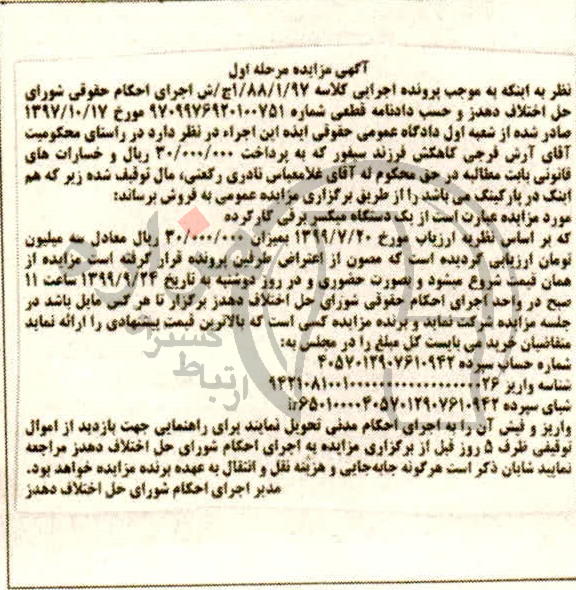 آگهی مزایده مرحله اول
نظر به اینکه به موجب پرونده اجرایی کلاسه ۱/۸۸/۱/۹۷ج/ش اجرای احکام حقوقی شورای
حل اختلاف دهدز و حسب دادنامه قطعی شماره ۹۷۰۹۹۷۶۹۲۰۱۰۰۷۵۱ مورخ ۱۳۹۷/۱۰/۱۷
صادر شده از شعبه اول دادگاه عمومی حقوقی ایذه این اجراء در نظر دارد در راستای محکومیت
آقای آرش فرجی کاهکش فرزند سیفور که به پرداخت ۳۰/۰۰۰/۰۰۰ ریال و خسارات های
قانونی بابت مطالبه در حق محکوم له آقای غلامعباس نادری رکعتی، مال توقیف شده زیر که هم
اینک در پارکینگ می باشد را از طریق برگزاری مزایده عمومی به فروش برساند:
مورد مزایده عبارت است از یک دستگاه میکسر برقی کارکرده
که بر اساس نظریه ارزیاب مورخ ۱۳۹۹/۷/۲۰ بمیزان ۳۰/۰۰۰/۰۰۰ ریال معادل سه میلیون
تومان ارزیابی گردیده است که مصون از اعتراض طرفین پرونده قرار گرفته است مزایده از
همان قیمت شروع میشود و بصورت حضوری و در روز دوشنبه به تاریخ ۱۳۹۹/۹/۲۴ ساعت ۱۱
صبح در واحد اجرای احکام حقوقی شورای حل اختلاف دهدز برگزار تا هر کس مایل باشد در
جلسه مزایده شرکت نماید و برنده مزایده کسی است که بالاترین قیمت پیشنهادی را ارائه نماید
متقاضیان خرید می بایست کل مبلغ را در مجلس به:
شماره حساب سپرده ۴۰۵۷۰۱۲۹۰۷۶۱۰۹۴۲
شناسه واریز
شبای سپرده
واریز و فیش آن را به اجرای احکام مدنی تحویل نمایند برای راهنمایی جهت بازدید از اموال
توقیفی ظرف ۵ روز قبل از برگزاری مزایده به اجرای احکام شورای حل اختلاف دهدز مراجعه
نمایید شایان ذکر است هرگونه جابه‌جایی و هزینه نقل و انتقال به عهده برنده مزایده خواهد بود.
مدیر اجرای احکام شورای حل اختلاف دهدز